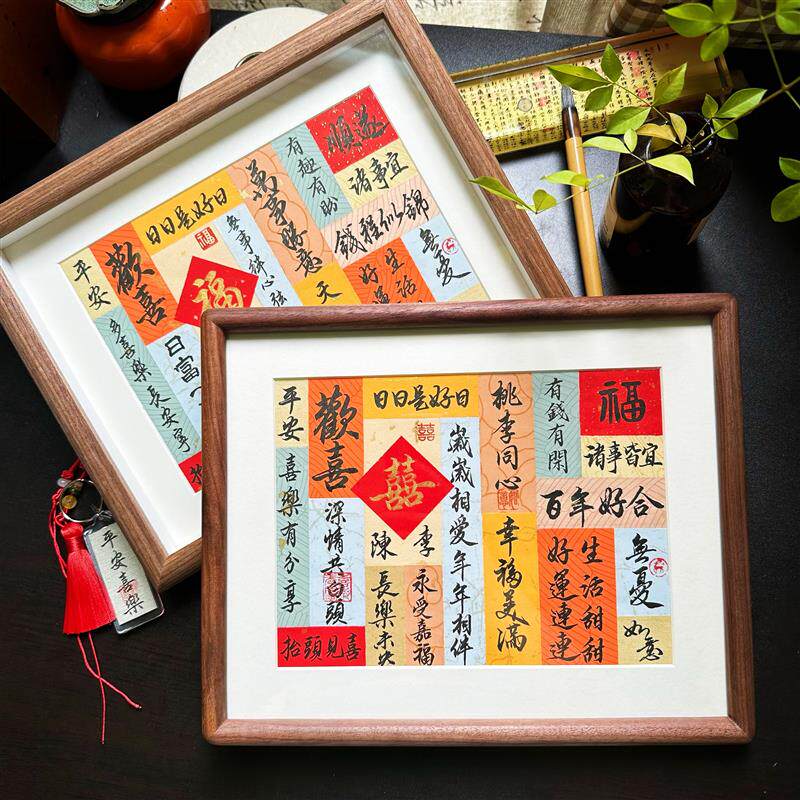 順遂
有趣有盼
諸事宜
萬事勝意
日日是好日
錢程似錦
無憂
歡喜
平安
福
福
無事絆心弦
生活
好運
天
多喜樂長安寧
日富一
平安
歡喜
日日是好日
桃李同心
有錢有閑
福
諸事皆宜
囍
囍
歲歲相愛年年相伴
百年好合
喜樂有分享
深情共白頭
陳
李
長樂未央
永受嘉福
幸福美滿
生活甜甜
好運連連
無憂
如意
抬頭見喜
平安喜樂